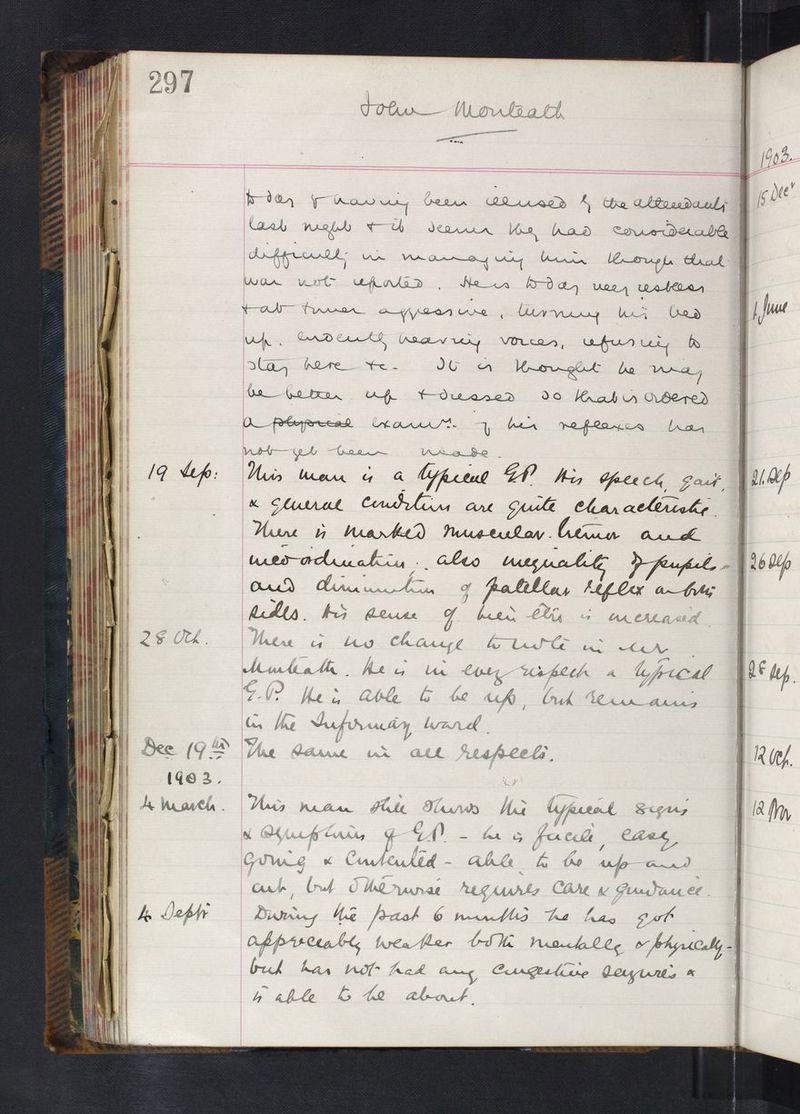 297
John Monteath
to day of having been illused by the attendants
last night & it seems they had considerable
difficulty in managing him though that
was not reported. He is to day very restless
& at times aggressive, turning his bed
up. evidently hearing voices, refusing to
stay here &c. It is thought he may
be better up & dressed so that is ordered
a physical exam of his reflexes has
not yet been made.
19 Sep: This man is a typical G.P. His speech, gait,
& general condition are quite characteristic.
There is marked muscular tremor and
incoordination; also inequality of pupils -
and diminution of patellar reflex on both
sides. His sense of bien être is increased.
28 Oct. There is no change to note in Mr
Monteath. He is in every respect a typical
G.P. He is able to be up, but remains
in the Infirmary ward.
Dec 19th The same in all respects.
1903.
4 March. This man still shows the typical signs
& symptoms of G.P. - he is facile, easy
going & contented - able to be up and
out, but otherwise requires care & guidance.
4 Septr During the past 6 months he has got
appreciably weaker both mentally & physically -
but has not had any congestive seizures &
is able to be about.
1903.
15 Decr
4 June
21. Sep
26 Sep
28 Sep.
12 Oct.
12 Nov